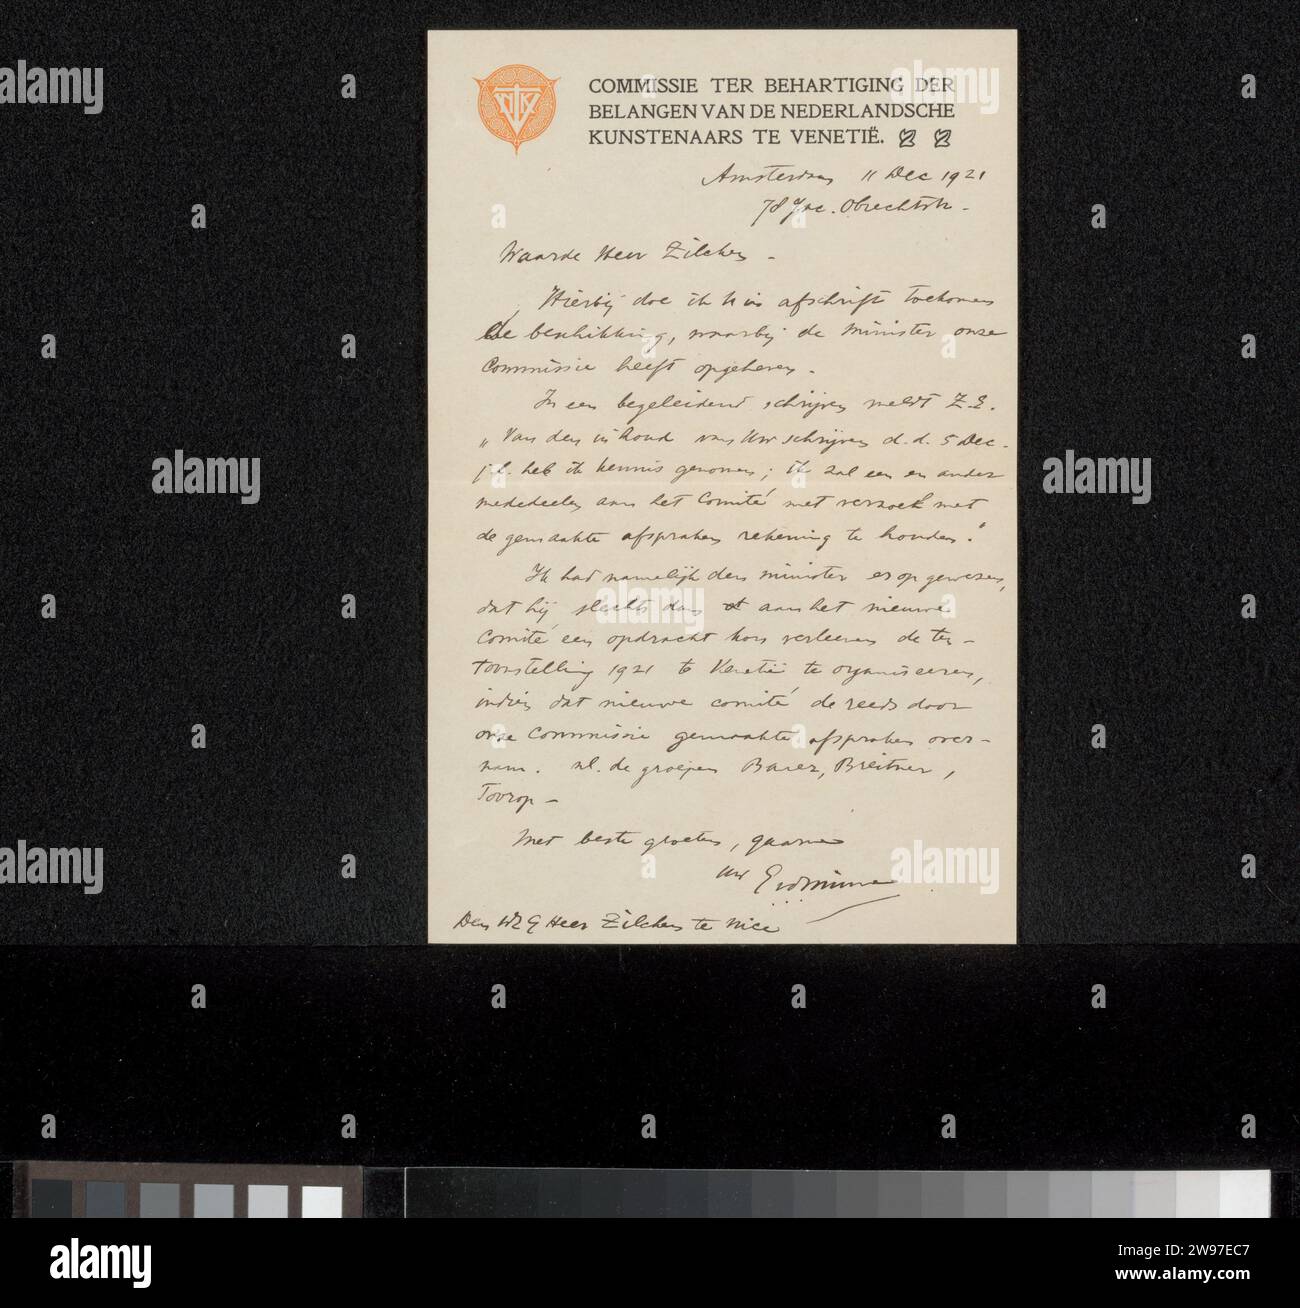 COMMISSIE TER BEHARTIGING DER
BELANGEN VAN DE NEDERLANDSCHE
KUNSTENAARS TE VENETIË.
Amsterdam 11 Dec 1921
78 Jac. Obrechtstr.
Waarde Heer Zilcken -
Hierbij doe ik U in afschrift toekomen
de beschikking, waarbij de Minister onze
Commissie heeft opgeheven.
In een begeleidend schrijven meldt Z.E.
„Van den inhoud van Uw schrijven d.d. 5 Dec.
j.l. heb ik kennis genomen; ik zal een en ander
mededeelen aan het Comité met verzoek met
de gemaakte afspraken rekening te houden."
Ik had namelijk den minister er op gewezen,
dat hij slechts dan aan het nieuwe
Comité een opdracht kon verleenen de ten-
toonstelling 1921 te Venetië te organiseeren,
indien dat nieuwe comité de reeds door
onze Commissie gemaakte afspraken over-
nam. nl. de groepen Bauer, Breitner,
Toorop -
Met beste groeten, gaarne
Uw
Den WEG Heer Zilcken te Nice
alamy
Image ID: 2W97EC7
www.alamy.com